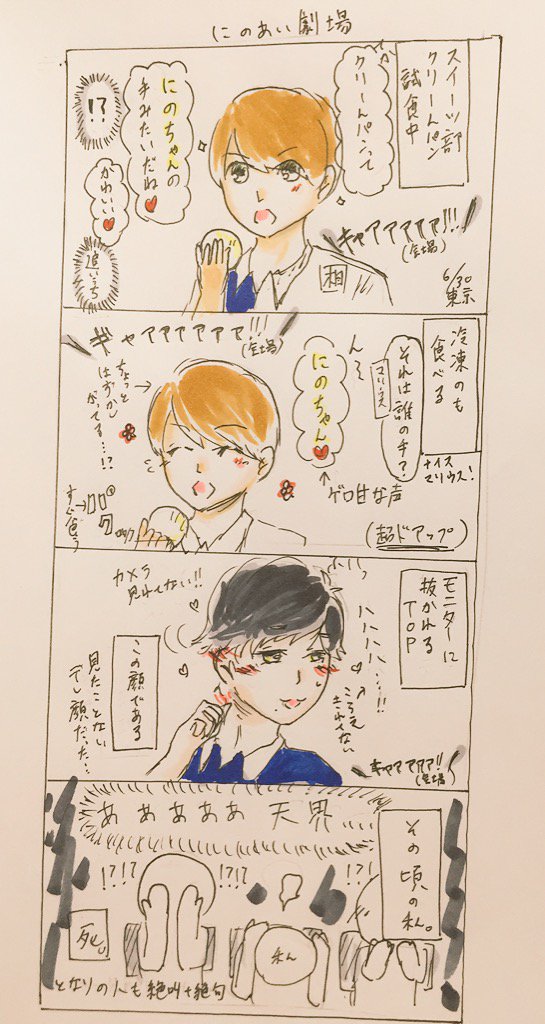 にのあい劇場
スイーツ部
クリームパン
試食中
クリームパンって
にのちゃんの
手みたいだね
!?
かわいい
追いうち
キャアアアアア!!!
(会場)
相
6/30
東京
冷凍のも
食べる
それは誰の手?
マリウス
ナイス
マリウス!
んー
にのちゃん
ゲロ甘な声
(超ドアップ)
ギャアアアアアアア!!!
(会場)
ちょっと
はずかし
がってる…!?
すぐ食う
モニターに
抜かれる
TOP
カメラ
見れない!!
ハハハハ…!!
こらえ
きれてない
この顔である
見たことない
デレ顔だった…
キャアアアア!!
(会場)
その頃の私。
あああああ 天界…
!?!?
!?!?
!?!?
私
死。
となりの人も絶叫+絶句